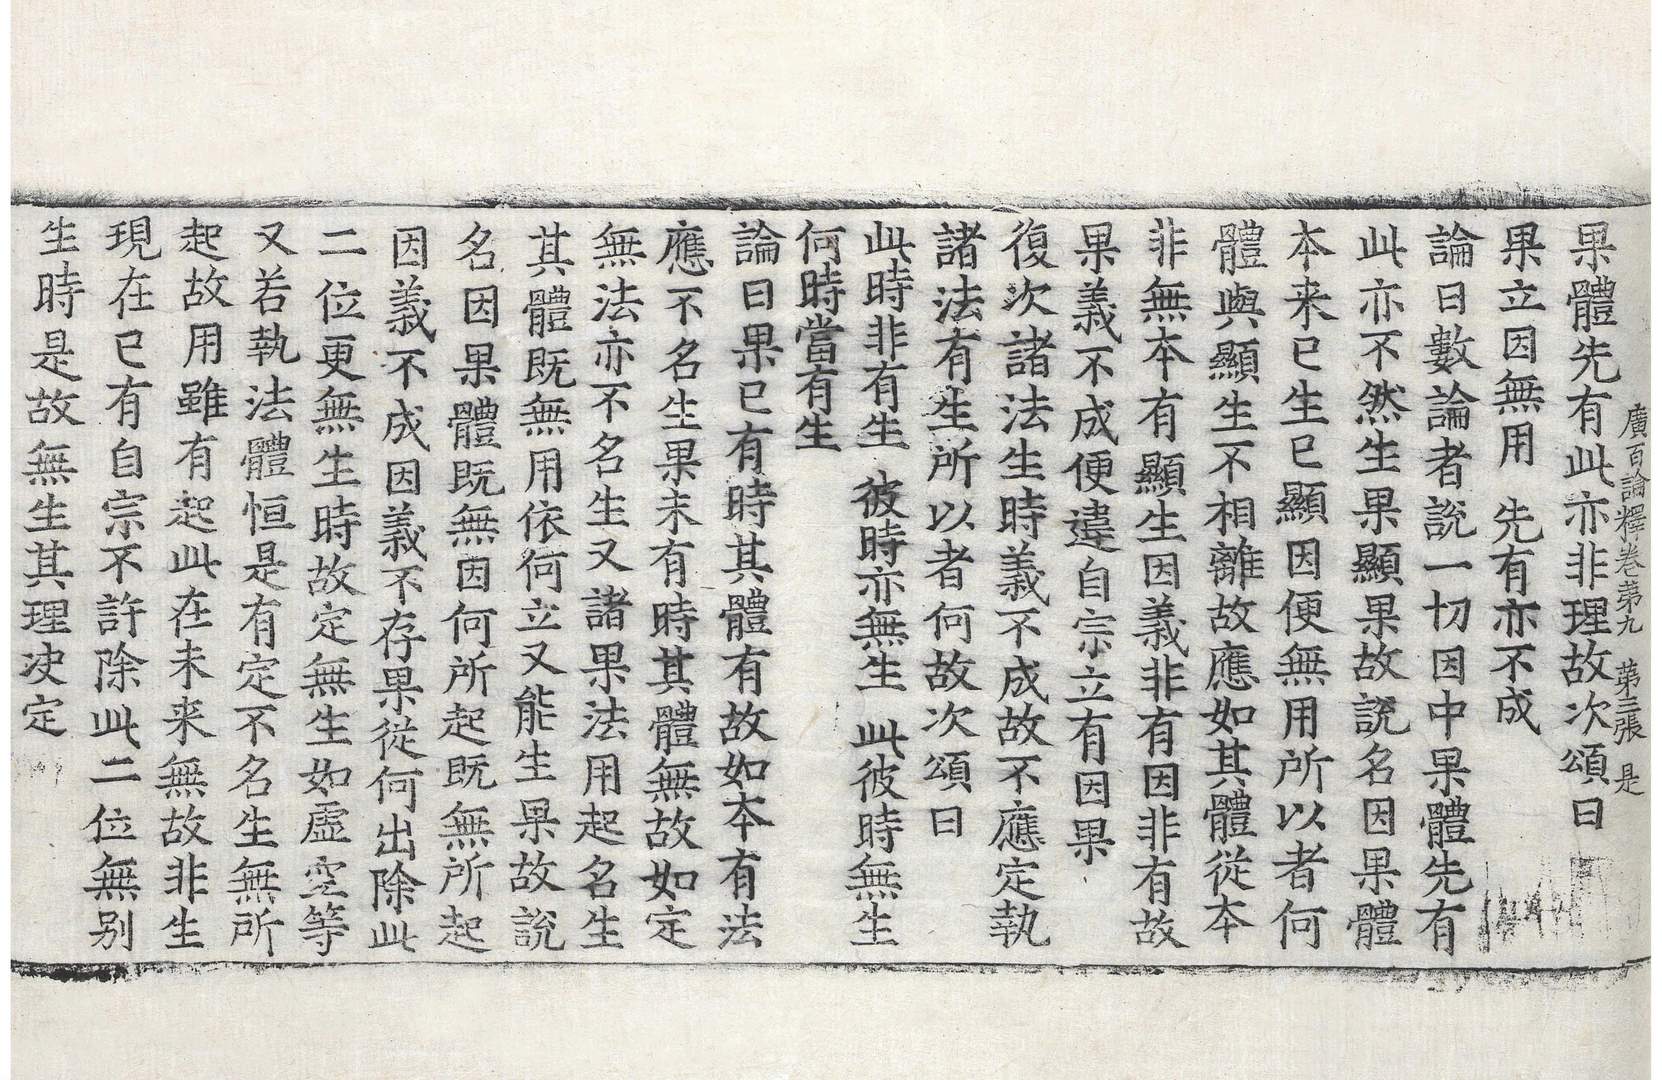 廣百論釋卷第九　第三張　是
果體先有此亦非理故次頌曰
果立因無用　先有亦不成
論曰數論者說一切因中果體先有
此亦不然生果顯果故說名因果體
本来已生已顯因便無用所以者何
體與顯生不相離故應如其體從本
非無本有顯生因義非有因非有故
果義不成便違自宗立有因果
復次諸法生時義不成故不應定執
諸法有生所以者何故次頌曰
此時非有生　彼時亦無生　此彼時無生
何時當有生
論曰果已有時其體有故如本有法
應不名生果未有時其體無故如定
無法亦不名生又諸果法用起名生
其體既無用依何立又能生果故說
名因果體既無因何所起既無所起
因義不成因義不存果從何出除此
二位更無生時故定無生如虛空等
又若執法體恒是有定不名生無所
起故用雖有起此在未来無故非生
現在已有自宗不許除此二位無別
生時是故無生其理决定